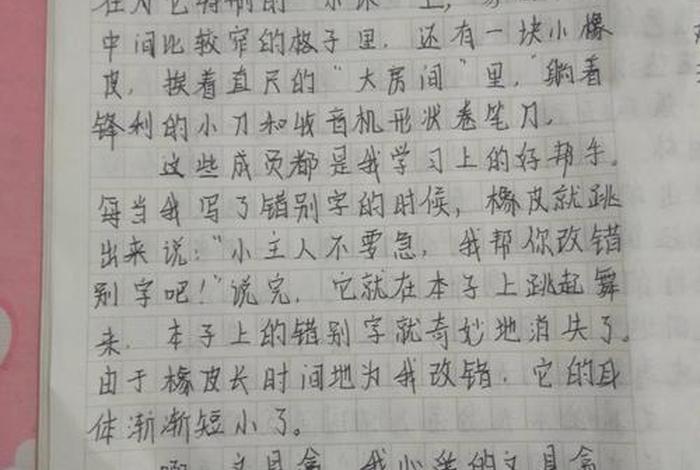 在为它特制的“小床”上，
中间比较窄的格子里，还有一块小橡
皮，挨着直尺的“大房间”里，躺着
锋利的小刀和收音机形状卷笔刀。
这些成员都是我学习上的好帮手。
每当我写了错别字的时候，橡皮就跳
出来说：“小主人不要急，我帮你改错
别字吧！”说完，它就在本子上跳起舞
来，本子上的错别字就奇妙地消失了。
由于橡皮长时间地为我改错，它的身
体渐渐短小了。
啊，文具盒，我心爱的文具盒